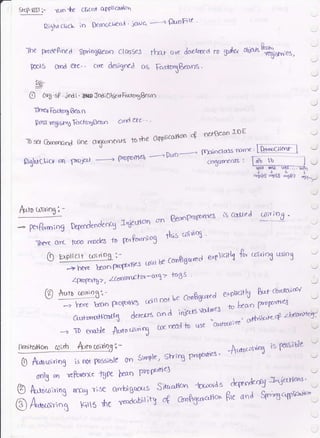 Step-III :- run the client application
Right click in DemoClient.java → Run File.
The predefined SpringBean classes that are declared to gather obj from registries,
pools and etc.. are designed as FactoryBeans.
Eg:
① org.sf.jndi.JndiObjectFactoryBean
Factory Bean
registry FactoryBean and etc..
To set command line arguments to the application of netBean IDE
Right click on project → properties → Run → Mainclass name: DemoClient
arguments :
Auto wiring :-
→ performing Dependendency Injection on Beanproperties is called wiring.
There are two modes to performing this wiring.
① Explicit wiring :-
→ here bean properties will be configured explicitly for wiring using
<property>, <constructor-arg> tags
② Auto wiring :-
→ here bean properties will not be configured explicitly But container
automatically detects and injects values to bean properties
→ To enable Autowiring we need to use 'autowire' attribute of <bean> tag
Limitation with Auto wiring :-
① Autowiring is not possible on simple, string properties. Autowiring is possible
only on reference type bean properties
② Autowiring may rise ambigious situation towards dependency Injections.
③ Autowiring kills the readability of configuration file and Spring application